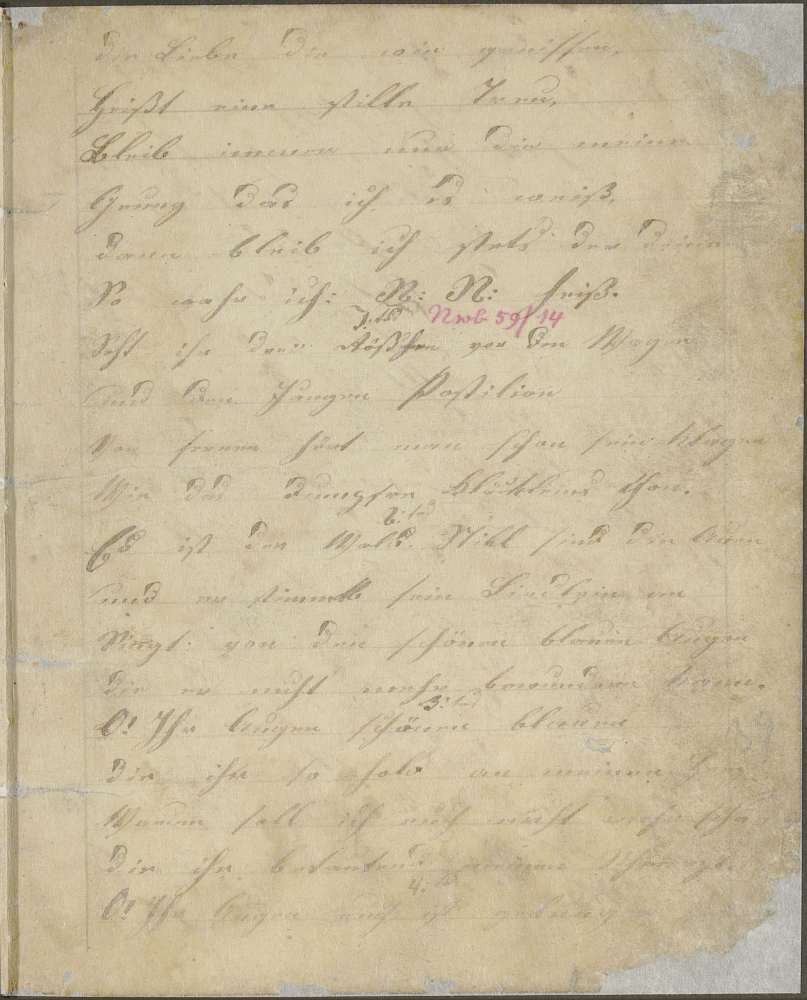 der Liebe die wir genissen,
Heißt eine stille Treu,
Bleib immer nur die meine
Genug das ich es weiß,
dann bleib ich stets der deine
So wahr ich: N: N: heiß.
1: tes Nwb 59/14
Seht ihr drei Rößlein vor den Wagen
und den Jungen Postilion
Von fernen hört man schon sein Klagen
Wie das dumpfen Glöckleins Thon.
2: tes
Es ist der Wald. Still sind die Auen
und er stimmt sein Liedlein an
Singt: von den schönen blauen Augen
die er nicht mehr bewundern kann.
3: tes
O! Ihr Augen schönen blauen
die ihr so hold an meinem
Warum soll ich euch nicht mehr
die ihr meinen
4: tes
O! Ihr Augen euch ist